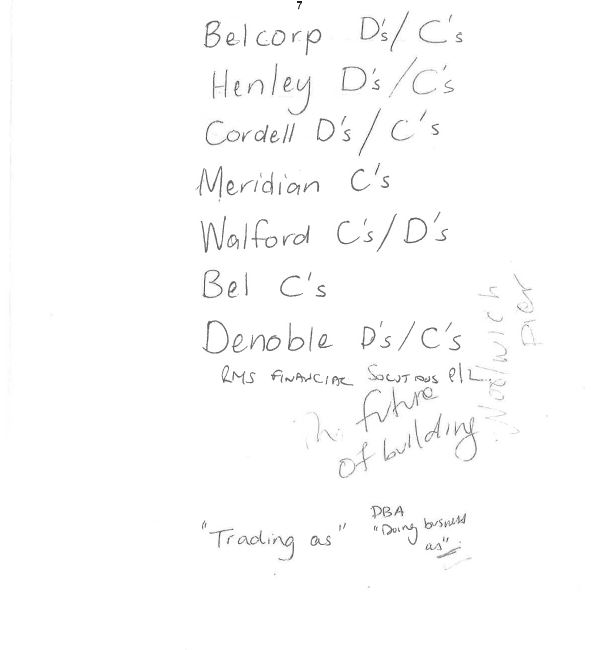 7
Belcorp D's/C's
Henley D's/C's
Cordell D's/C's
Meridian C's
Walford C's/D's
Bel C's
Denoble D's/C's
RMS FINANCIAL SOLUTIONS P/L
Woolwich
Pier
The future
of building
"Trading as"
DBA
"Doing business
as"